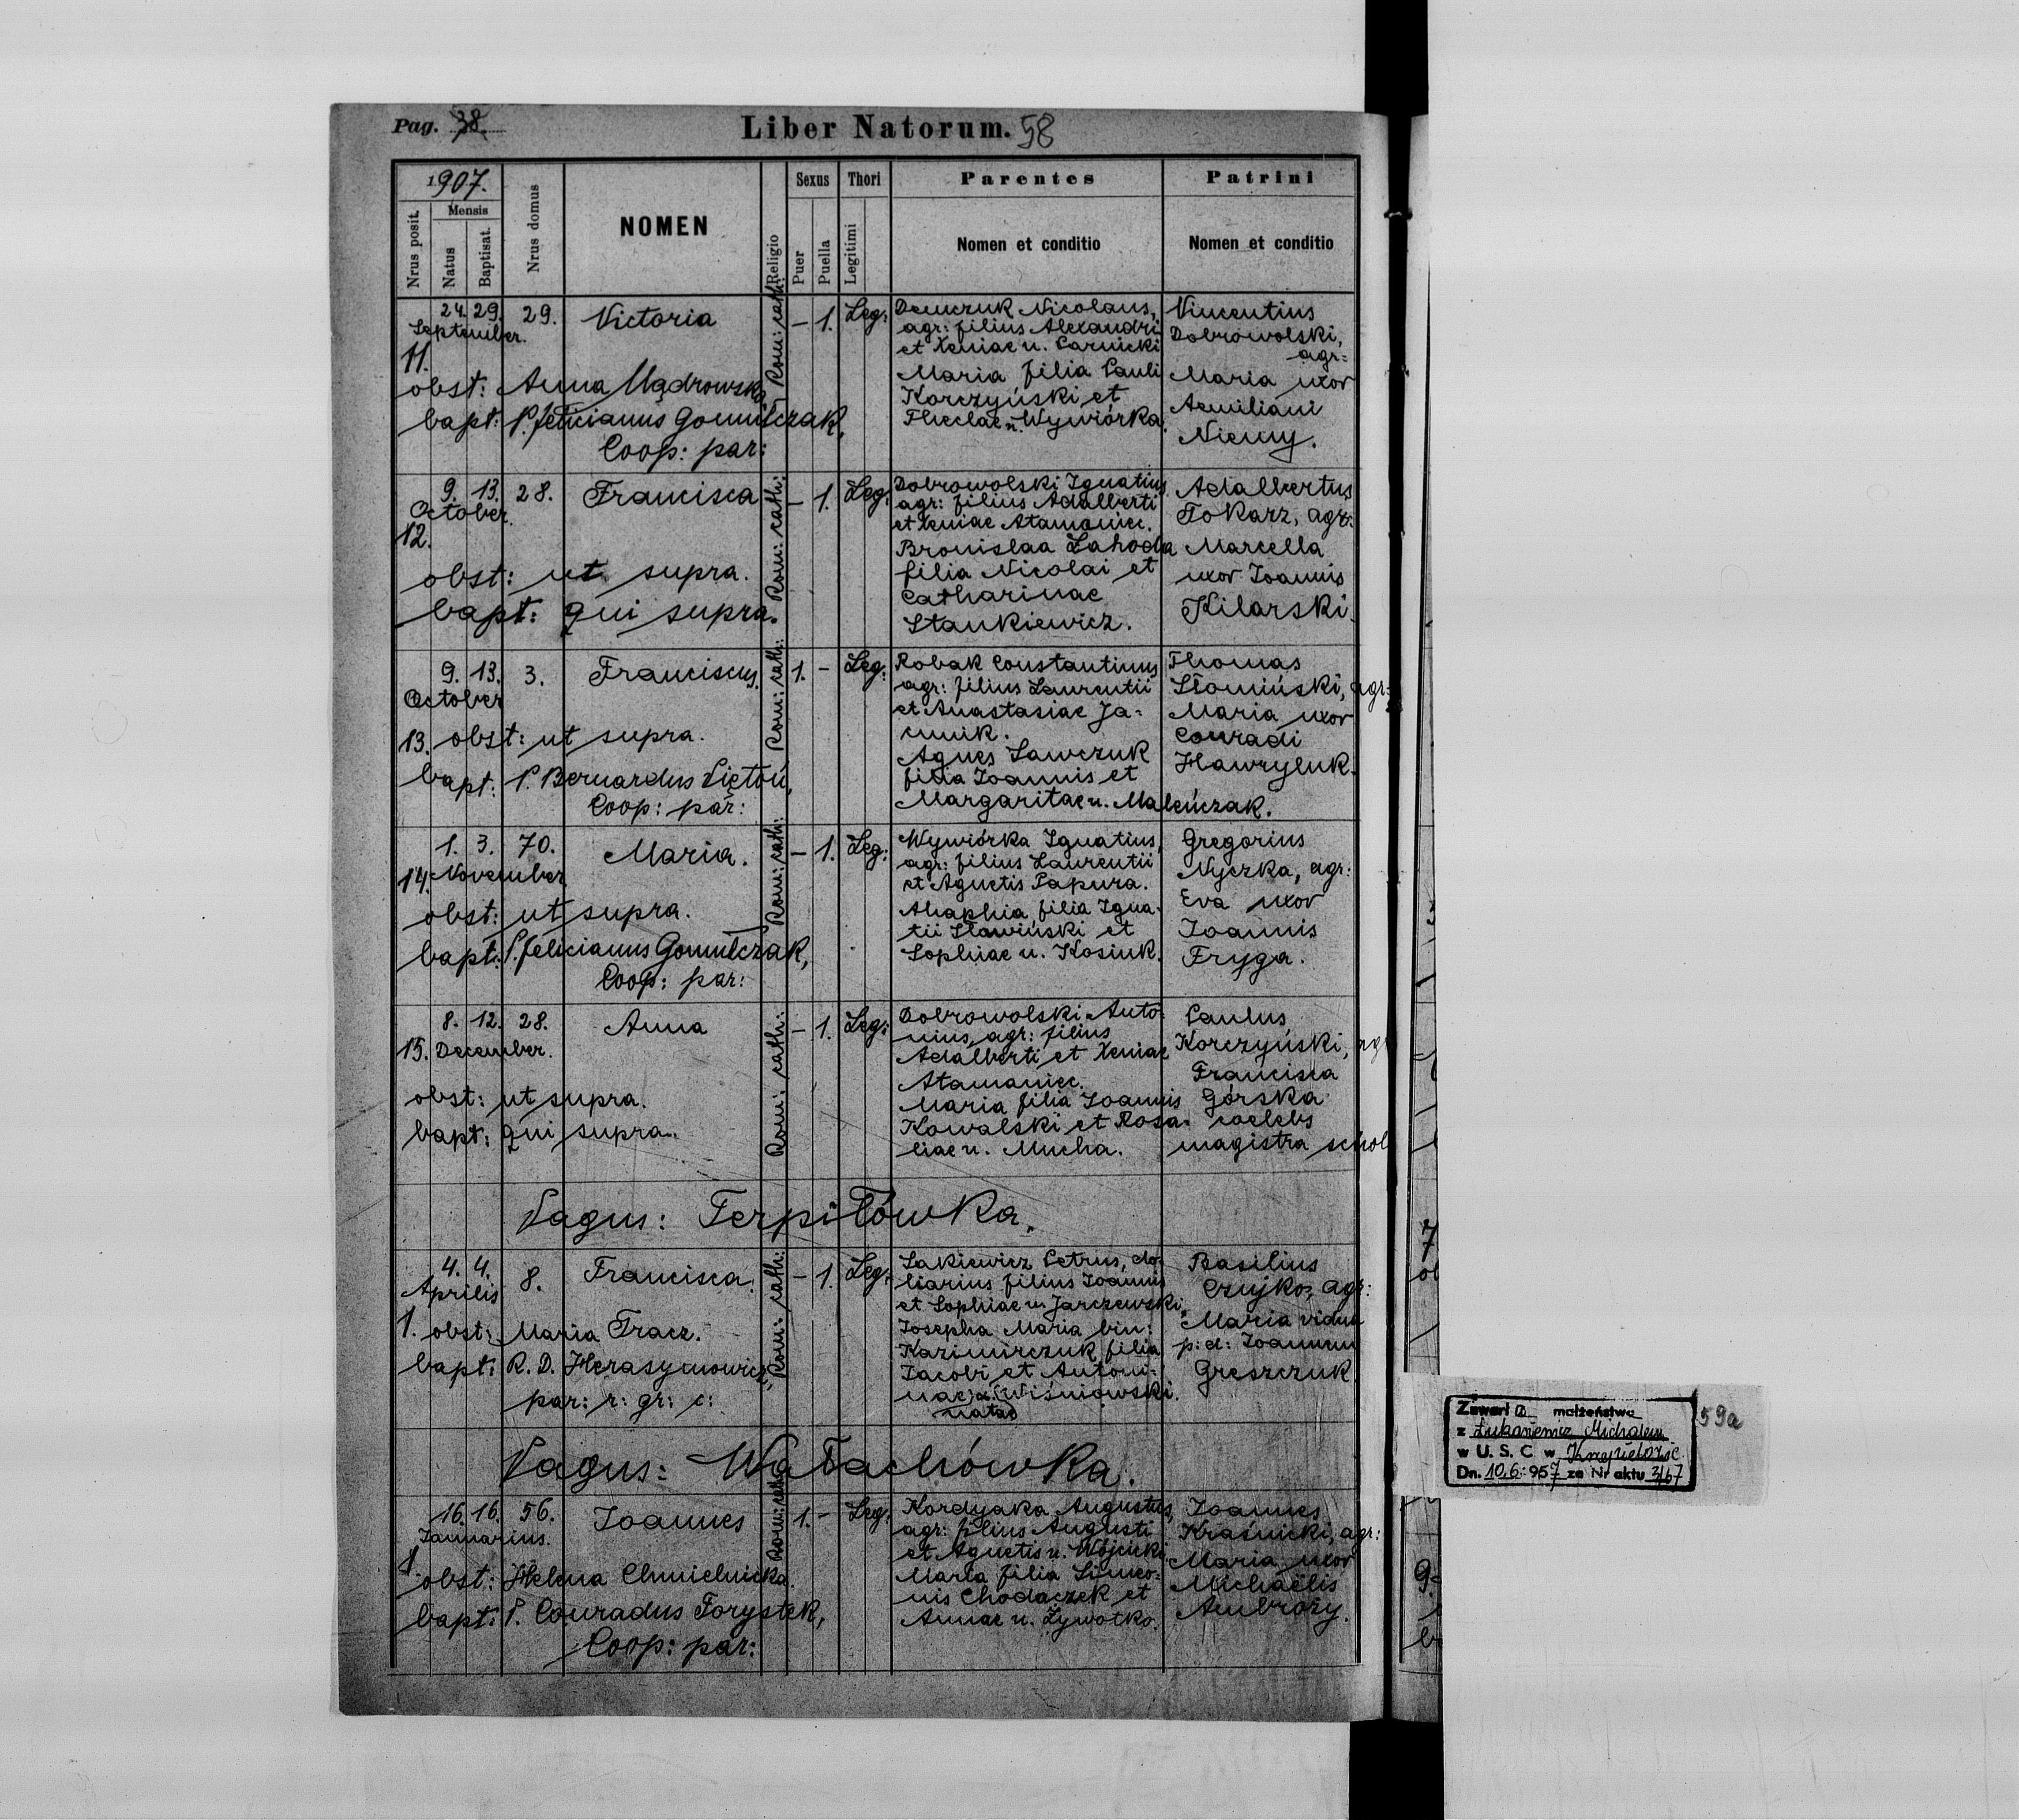 Pag. 38.
Liber Natorum. 58
1907.
Nrus posit.
Mensis
Natus
Baptisat.
Nrus domus
NOMEN
Religio
Sexus
Puer
Puella
Thori
Legitimi
Parentes
Nomen et conditio
Patrini
Nomen et conditio
24. 29. 29. Victoria
September.
11.
obst: Anna Mądrowska
bapt: P. Felicianus Gomułczak,
Coop: par:
Rom: cath:
– 1. Leg:
Demczuk Nicolaus,
agr: filius Alexandri
et Xeniae n. Carnicki
Maria filia Pauli
Korczyński et
Theclae n. Wywiórka.
Vincentius
Dobrowolski,
agr:
Maria uxor
Aemiliani
Niemy.
9. 13. 28. Francisca
October.
12.
obst: ut supra.
bapt: qui supra.
Rom: cath:
– 1. Leg:
Dobrowolski Ignatius
agr: filius Adalberti
et Xeniae Atamaniec.
Bronislaa Zahoda
filia Nicolai et
Catharinae
Stankiewicz.
Adalbertus
Tokarz, agr:
Marcella
uxor Joannis
Kilarski.
9. 13. 3. Franciscus.
October
13. obst: ut supra.
bapt: P. Bernardus Piętoń,
Coop: par:
Rom: cath:
1. – Leg:
Robak Constantinus
agr: filius Laurentii
et Anastasiae Ja-
Agnes Sawczuk
filia Joannis et
Margaritae n. Maleńczak.
Thomas
Słomiński, agr:
Maria uxor
Conradi
Hawryluk.
1. 3. 70. Maria.
14. November
obst: ut supra.
bapt: P. Felicianus Gomułczak,
Coop: par:
Rom: cath:
– 1. Leg:
Wywiórka Ignatius,
agr: filius Laurentii
et Agnetis Papura.
Ahaphia filia Igna-
tii Sławiński et
Sophiae n. Kosiuk.
Gregorius
Nyczka, agr:
Eva uxor
Joannis
Fryga.
8. 12. 28. Anna
15. December.
obst: ut supra.
bapt: qui supra.
Rom: cath:
– 1. Leg:
Dobrowolski Anto-
nius, agr: filius
Adalberti et Xeniae
Atamaniec.
Maria filia Joannis
Kowalski et Rosa-
liae n. Mucha.
Paulus
Korczyński, agr
Francisca
Górska
coelebs
magistra schol
Pagus: Terpiłówka.
4. 4. 8. Francisca.
Aprilis
1. obst: Maria Tracz.
bapt: R. D. Herasymowicz,
par: r: gr: c:
Rom: cath:
– 1. Leg:
Sakiewicz Petrus, do-
liarius filius Joannis
et Sophiae n. Jarczewski.
Josepha Maria bin:
Kazimirczuk filia
Jacobi et Antoni-
nae Wiśniowski.
natae
Basilius
Czujko, agr:
Maria vidua
p: d: Joannem
Greszczuk.
Pagus: Wałachówka.
16. 16. 56. Joannes
Januarius.
1.
obst: Helena Chmielnicka.
bapt: P. Conradus Forystek,
Coop: par:
Rom: cath:
1. – Leg:
Kordyaka Augustus,
agr: filius Augusti
et Agnetis n. Wójcicki
Maria filia Simeo-
nis Chodaczek et
Annae n. Żywotko.
Joannes
Kraśnicki, agr:
Maria uxor
Michaëlis
Ambroży.
Zawarł a małżeństwo
z Łukasiewicz Michałem
w U. S. C w
Dn. 10.6. 957 za Nr aktu 3/67
59a